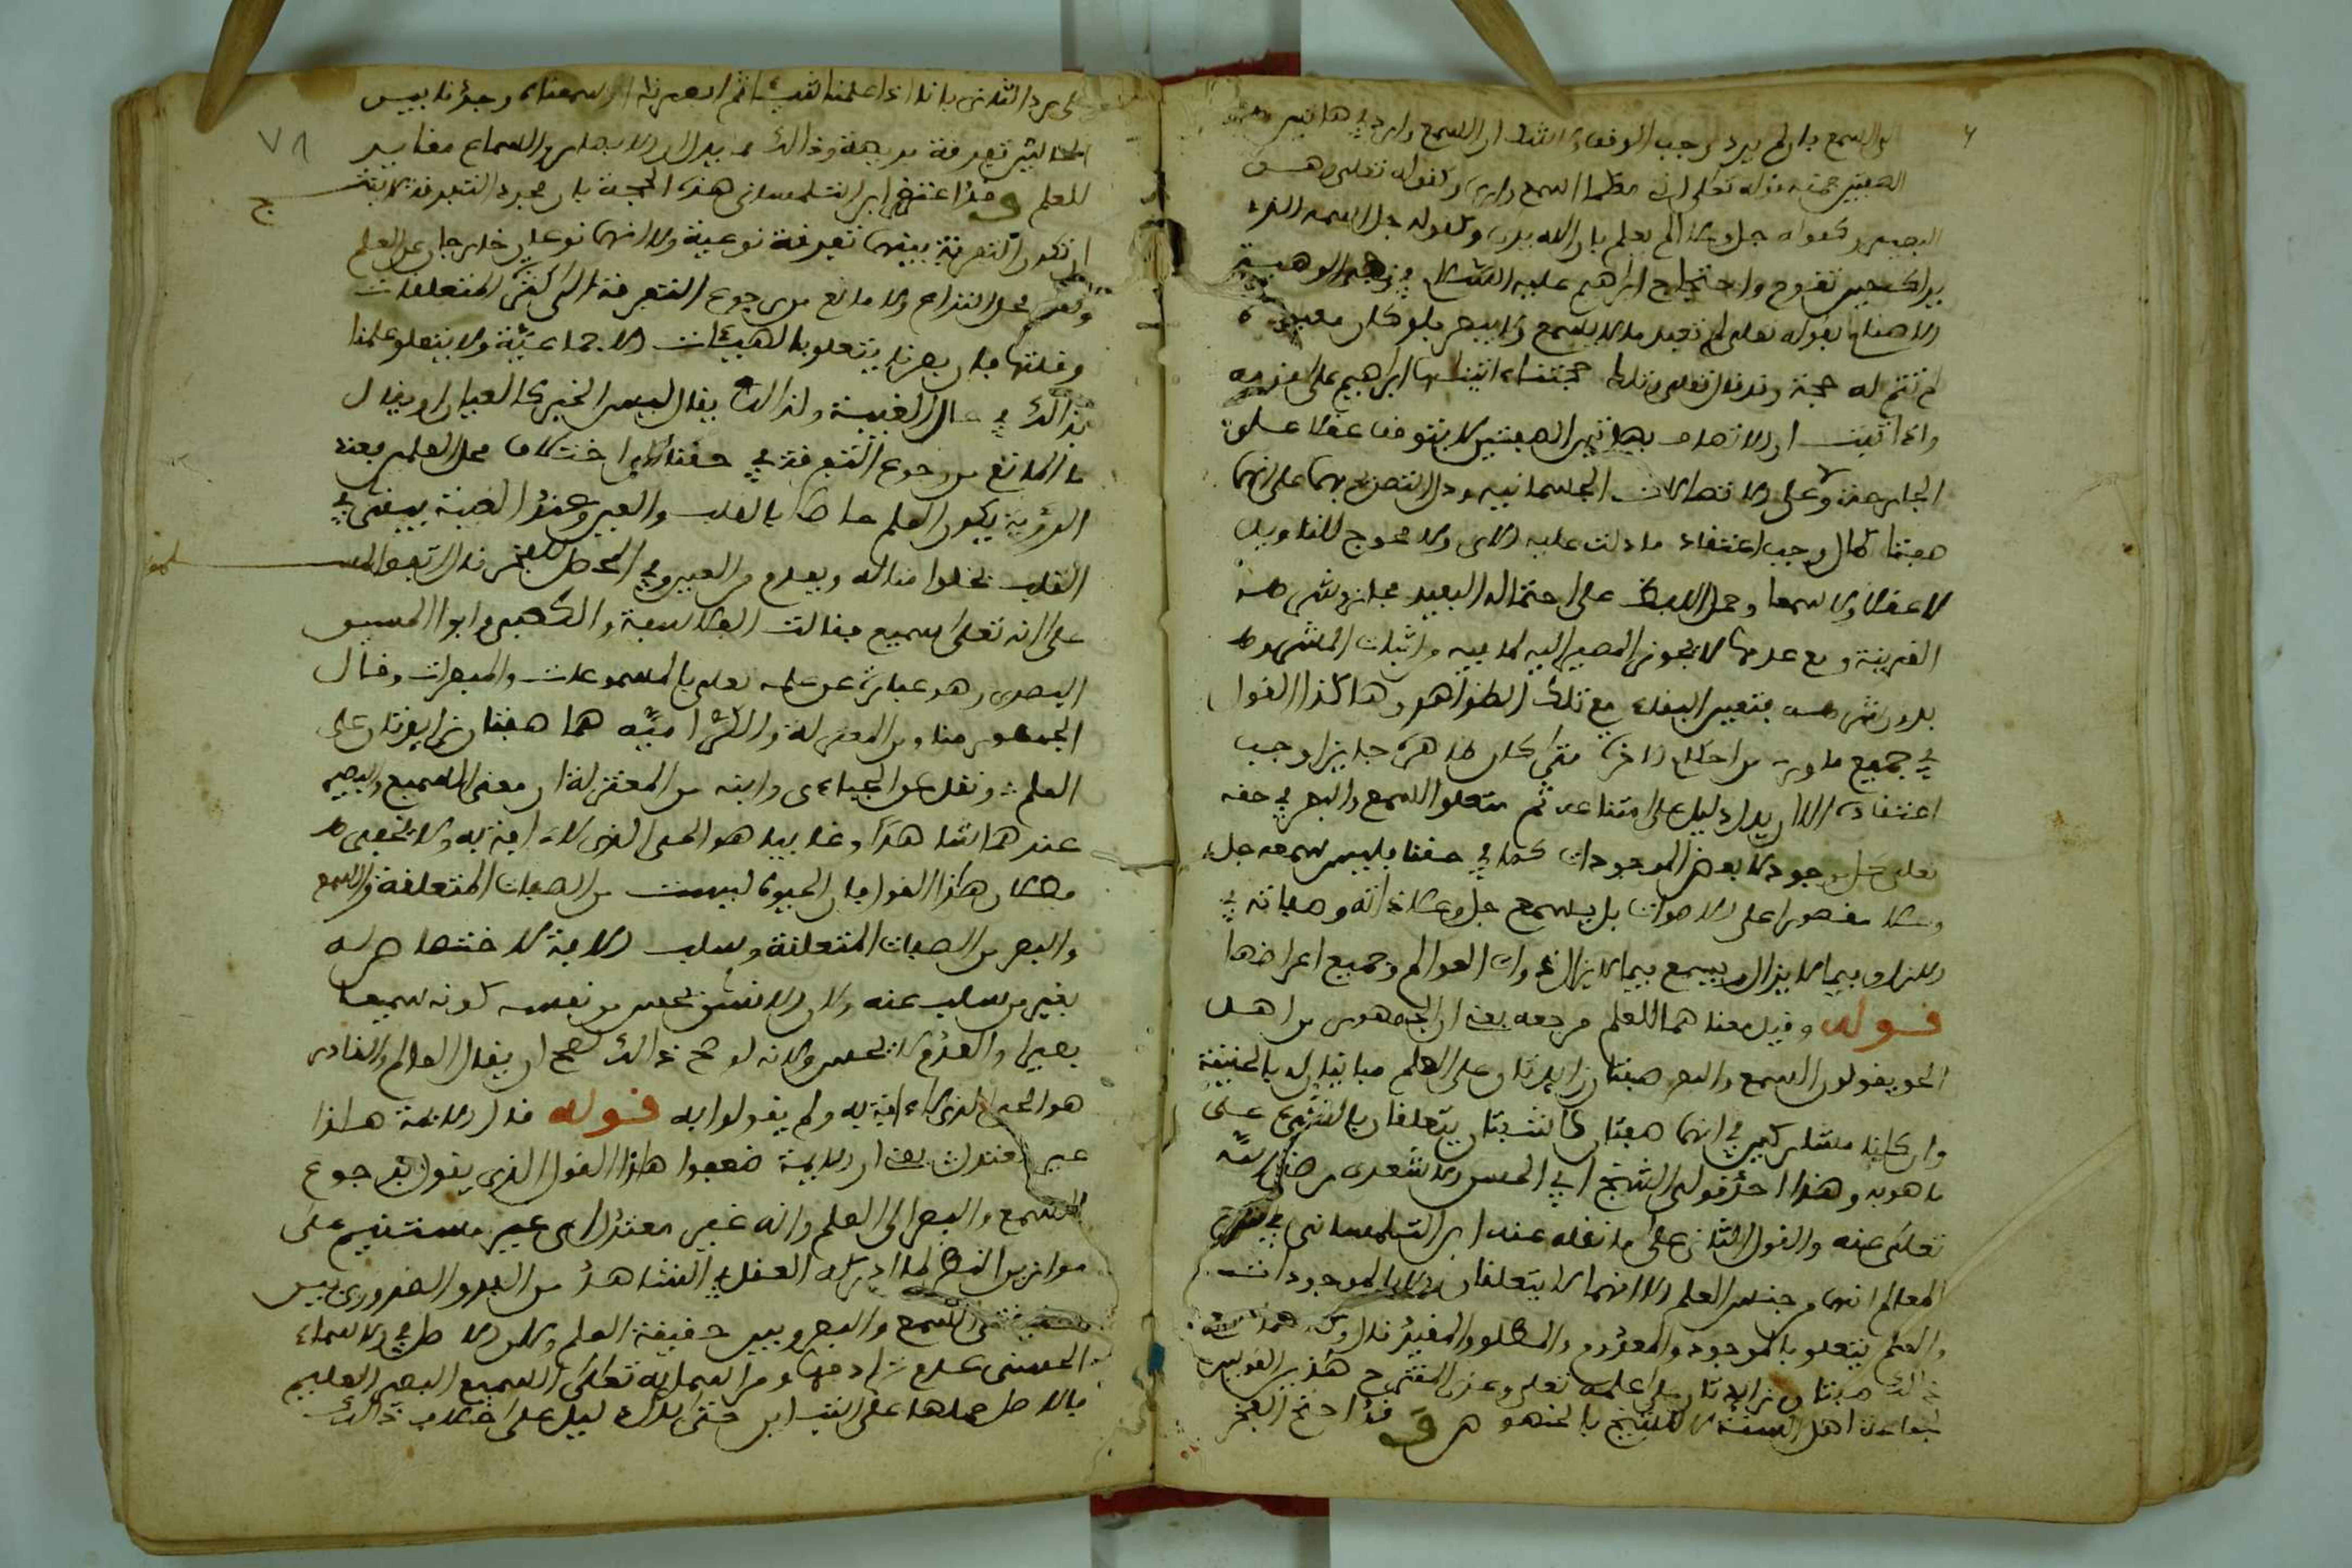 الصفتين جهة قوله تعالى إنني معكما أسمع وأرى وكقوله تعالى وهو
البصير وكقوله جل وعلا ألم يعلم بأن الله يرى وكقوله جل اسمه الذي
يراك حين تقوم واحتجاج إبراهيم عليه السلام في نفي الوهية
الاصنام بقوله تعالى لم تعبد ما لا يسمع ولا يبصر فلو كان معبوده
لم تتم له حجة وقد قال تعالى وتلك حجتنا ءاتيناها إبراهيم على قومه
واذا ثبت ان الاتصاف بهاتين الصفتين لا يتوقف عقلا على
الجارحة ولا على الاتصالات الجسمانية ودل النص بهما على انهما
صفتا كمال وجب اعتقاد ما دلت عليه الاى ولا محوج للتاويل
لا عقلا ولا سمعا وحمل اللفظ على احتماله البعيد مجاز شرطه
القرينة ومع عدمها لا يجوز المصير اليه لما فيه واثبات المشروط
بدون شرطه فتعين البقاء مع تلك الظواهر وهاكذا القول
في جميع ما ورد من احكام الاخرة متى كان ظاهره جايزا وجب
اعتقاده الا ان يدل دليل على امتناعه ثم متعلق السمع والبصر في حقه
تعالى كل موجود لا بعض الموجودات كما في حقنا فليس سمعه جل
وعلا مقصورا على الاصوات بل يسمع جل وعلا ذاته وصفاته في
الازل وفيما لا يزال ويسمع فيما لا يزال ذوات العوالم وجميع اعراضها
قوله وقيل معناهما للعلم مرجعه يعني ان الجمهور من اهل
الحق يقولون السمع والبصر صفتان زايدتان على العلم مباينتان له بالحقيقة
وان كانا مشاركين في انهما صفتان كاشفتان يتعلقان بالشيء على
ما هو به وهذا احد قولي الشيخ ابي الحسن الاشعري رضي الله
تعالى عنه والقول الثاني على ما نقله عنه ابن التلمساني في شرح
المعالم انهما من جنس العلم الا انهما لا يتعلقان الا بالموجودات
والعلم يتعلق بالموجود والمعدوم والمطلق والمقيد قال وهما مع
ذالك صفتان زايدتان على علمه تعالى وعزى المقترح هذين القولين
لجماعة اهل السنة لا للشيخ بالخصوص وقد احتج الفخر
على رد الثاني بانا اذا علمنا الشيء ثم ابصرناه او سمعناه وجدنا بين
الحالتين تفرقة بديهة وذالك مما يدل ان الابصار والسماع مغاير
للعلم وقد اعترض ابن التلمساني هذه الحجة بان مجرد التفرقة لا يثبت
ان تكون التفرقة بينهما تفرقة نوعية والا انهما نوعان خارجان عن العلم
وهو محل النزاع ولا مانع من رجوع التفرقة الى كثرة المتعلقات
وقلتها فان بصرنا يتعلق بالهيئات الاجماعية ولا يتعلق علمنا
بذالك في حال الغيبة ولذالك يقال ليس الخبر كالعيان او يقال
ما المانع من رجوع التفرقة في حقنا الى اختلاف محل العلم فعند
الرؤية يكون العلم حاصلا بالقلب والعين وعند الغيبة يبقى في
القلب لخلوا مثاله ويعدم من العين وفي المحصل للفخر قال اتفق المسلمون
على انه تعالى سميع فقالت الفلاسفة والكعبي وابو الحسين
البصري هو عبارة عن علمه تعالى بالمسموعات والمبصرات وقال
الجمهور منا ومن المعتزلة والكرامية هما صفتان زايدتان على
العلم ونقل عن الجباءى وابنه من المعتزلة ان معنى السميع والبصير
عندهما شاهدا وغايبا هو الحي الذي لا ءافة به ولا يخفى
بطلان هذا القول فان الحيوة ليست من الصفات المتعلقة والسمع
والبصر من الصفات المتعلقة وسلب الافة لا اختصاص له
بغير من سلب عنه ولان الانسان يحس من نفسه كونه سميعا
بصيرا والعدم لا يحس ولانه لو صح ذالك لصح ان يقال العالم والقادر
هو الحي الذي لا ءافة به ولم يقولوا به قوله قال الايمة هذا
غير معتدل يعني ان الايمة ضعفوا هاذا القول الذي يقول برجوع
السمع والبصر الى العلم وانه غير معتدل اى غير مستقيم على
موازين النظر لما ادركه العقل في الشاهد من الفرق الضروري بين
حقيقتي السمع والبصر وبين حقيقة العلم ولان الاصل في الاسماء
الحسنى عدم ترادفها ومن اسمائه تعالى السميع البصير العليم
فالاصل حملها على التباين حتى يدل دليل على خلاف ذالك